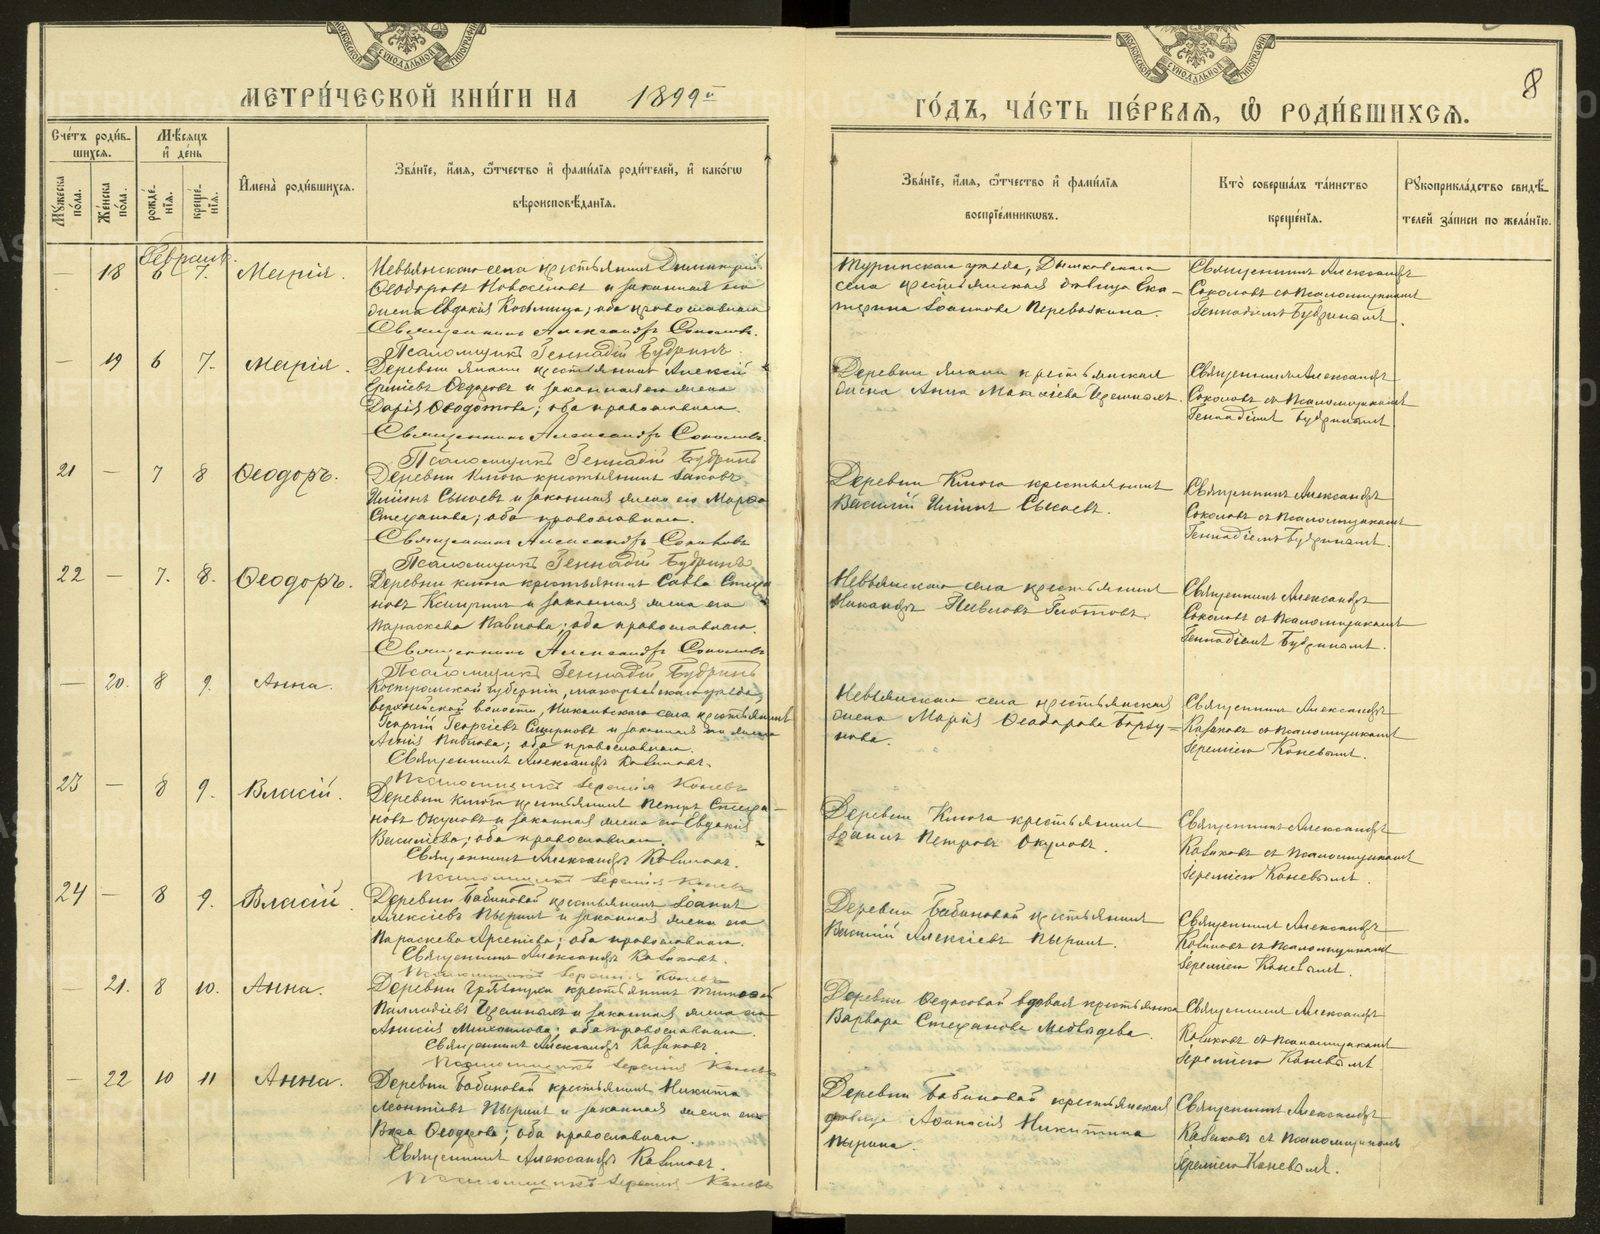 МЕТРИ́ЧЕСКОЙ КНИ́ГИ НА 1899й
ГО́ДЪ, ЧА́СТЬ ПЕ́РВАѦ, Ѡ҆ РОДИ́ВШИХСѦ.
8
Сче́тъ роди́в-
шихсѧ.
Мѣ́сѧцъ
и҆ де́нь
Мꙋ́жеска
по́ла.
Же́нска
по́ла.
рожде́-
нїѧ.
креще́-
нїѧ.
И҆мена̀ роди́вшихсѧ.
Зва́нїе, и҆́мѧ, ѻ҆́тчество и҆ фами́лїѧ роди́телей, и҆ како́гѡ
вѣроисповѣ́данїѧ.
Зва́нїе, и҆́мѧ, ѻ҆́тчество и҆ фами́лїѧ
воспрїе́мникѡвъ.
Кто̀ соверша́лъ та́инство
креще́нїѧ.
Рꙋкоприкла́дство свидѣ́-
телей за́писи по жела́нїю.
Февраль.
— 18 6 7. Марія.
Невьянскаго села крестьянинъ Димитрій
Ѳеодоровъ Новоселовъ и законная его
жена Евдокія; оба православнаго
Священникъ Александръ Соколовъ.
Псаломщикъ Геннадій Будринъ.
Туринскаго уѣзда, Дымковскаго
села крестьянская дѣвица Ека-
терина Іоаннова Перевозкина.
Священникъ Александръ
Соколовъ съ псаломщикомъ
Геннадіемъ Будринымъ.
— 19 6 7. Марія.
Деревни Ямани крестьянинъ Алексій
Ѳедоровъ и законная его жена
Дарія Ѳеодотова; оба православнаго.
Священникъ Александръ Соколовъ.
Псаломщикъ Геннадій Будринъ
Деревни Ямани крестьянская
жена Анна Черемныхъ.
Священникъ Александръ
Соколовъ съ псаломщикомъ
Геннадіемъ Будринымъ
21 — 7 8 Ѳеодоръ.
Деревни Ключа крестьянинъ Іаковъ
Сысоевъ и законная жена его Марѳа
Стефанова; оба православнаго.
Священникъ Александръ Соколовъ
Псаломщикъ Геннадій Будринъ
Деревни Ключа крестьянинъ
Василій Сысоевъ.
Священникъ Александръ
Соколовъ съ псаломщикомъ
Геннадіемъ Будринымъ.
22 — 7. 8. Ѳеодоръ.
Деревни Ключа крестьянинъ Савва Стефа
новъ и законная жена его
Параскева Павлова; оба православнаго.
Священникъ Александръ Соколовъ
Псаломщикъ Геннадій Будринъ
Невьянскаго села крестьянинъ
Никандръ Павловъ Глотовъ.
Священникъ Александръ
Соколовъ съ псаломщикомъ
Геннадіемъ Будринымъ.
— 20. 8 9. Анна.
Костромской губерніи, Макарьевскаго уѣзда,
волости, Никольскаго села крестьянинъ
Георгій Георгіевъ Смирновъ и законная его жена
Агнія Павлова; оба православнаго.
Священникъ Александръ Казаковъ.
Псаломщикъ Іеремія Коневъ
Невьянскаго села крестьянская
жена Марія Ѳеодорова Корзу-
нова.
Священникъ Александръ
Казаковъ съ псаломщикомъ
Іереміею Коневымъ.
23 — 8 9. Власій.
Деревни Ключа крестьянинъ Петръ Стефа-
новъ Окуловъ и законная жена его Евдокія
Василіева; оба православнаго.
Священникъ Александръ Казаковъ.
Псаломщикъ Іеремія Коневъ
Деревни Ключа крестьянинъ
Іоаннъ Петровъ Окуловъ.
Священникъ Александръ
Казаковъ съ псаломщикомъ
Іереміею Коневымъ.
24 — 8 9. Власій.
Деревни Бабиновой крестьянинъ Іоаннъ
Алексіевъ Пыринъ и законная жена его
Параскева Арсеніева; оба православнаго.
Священникъ Александръ Казаковъ.
Псаломщикъ Іеремія Коневъ
Деревни Бабиновой крестьянинъ
Василій Алексіевъ Пыринъ.
Священникъ Александръ
Казаковъ съ псаломщикомъ
Іереміею Коневымъ.
— 21. 8 10. Анна.
Деревни Грязнухи крестьянинъ Тимоѳей
Палладіевъ Черемныхъ и законная жена его
Анисія Михаилова; оба православнаго.
Священникъ Александръ Казаковъ.
Псаломщикъ Іеремія Коневъ
Деревни Ѳедосовой вдовая крестьянка
Варвара Стефанова Медвѣдева.
Священникъ Александръ
Казаковъ съ псаломщикомъ
Іереміею Коневымъ
— 22 10 11 Анна.
Деревни Бабиновой крестьянинъ Никита
Леонтіевъ Пыринъ и законная жена его
Вѣра Ѳеодорова; оба православнаго.
Священникъ Александръ Казаковъ.
Псаломщикъ Іеремія Коневъ
Деревни Бабиновой крестьянская
дѣвица Аѳанасія Никитина
Пырина.
Священникъ Александръ
Казаковъ съ псаломщикомъ
Іереміею Коневымъ.